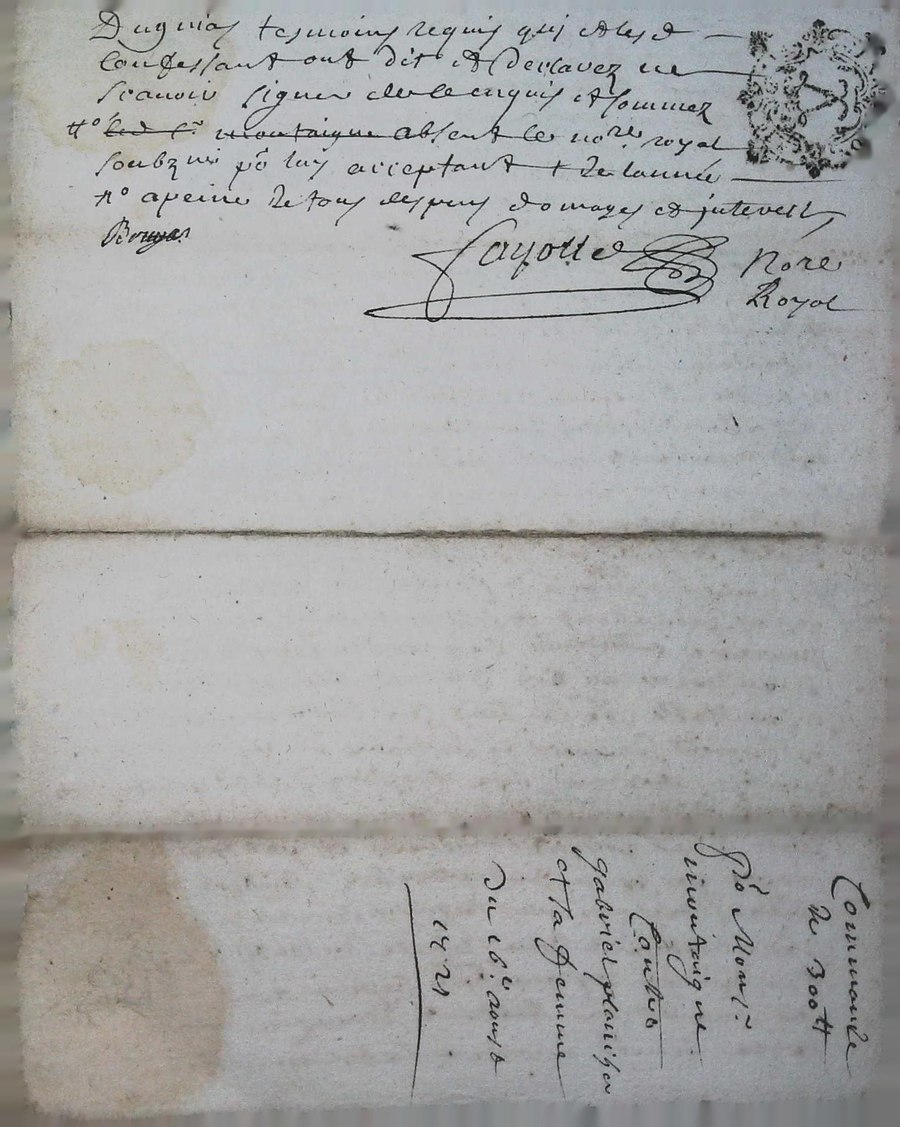 tesmoins requis qui et lesd
confessant ont dit et declarez ne
scavoir signer de ce enquis et sommez
#° led sr montaigne absent le nore royal
soubzne po luy acceptant +
#° a peine de tous despens domages et interests
nore
Royal
Commande
de 300 #
po Monsr
montaigne
Contre
gabriel
et sa femme
du 16e aoust
1721